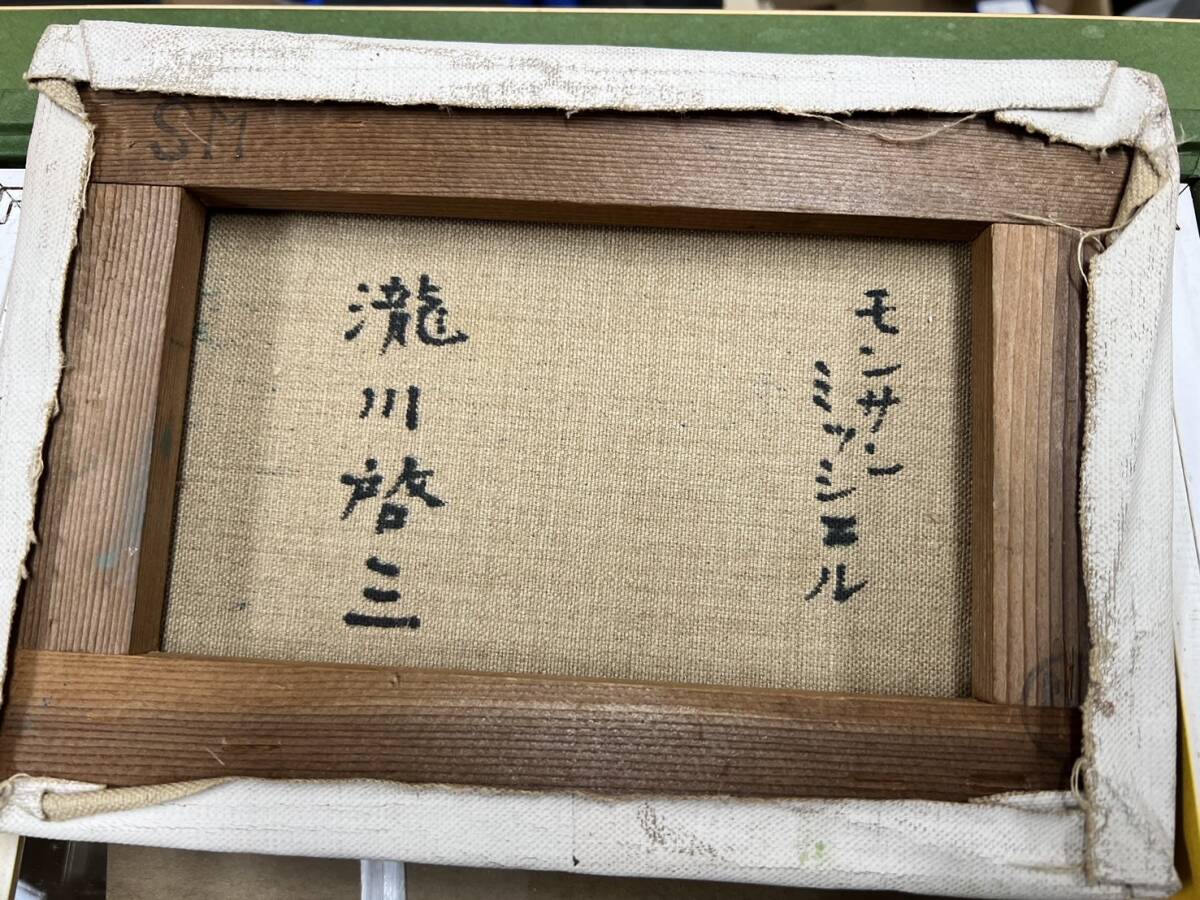 SM
モンサン
ミッシェル
瀧川啓三